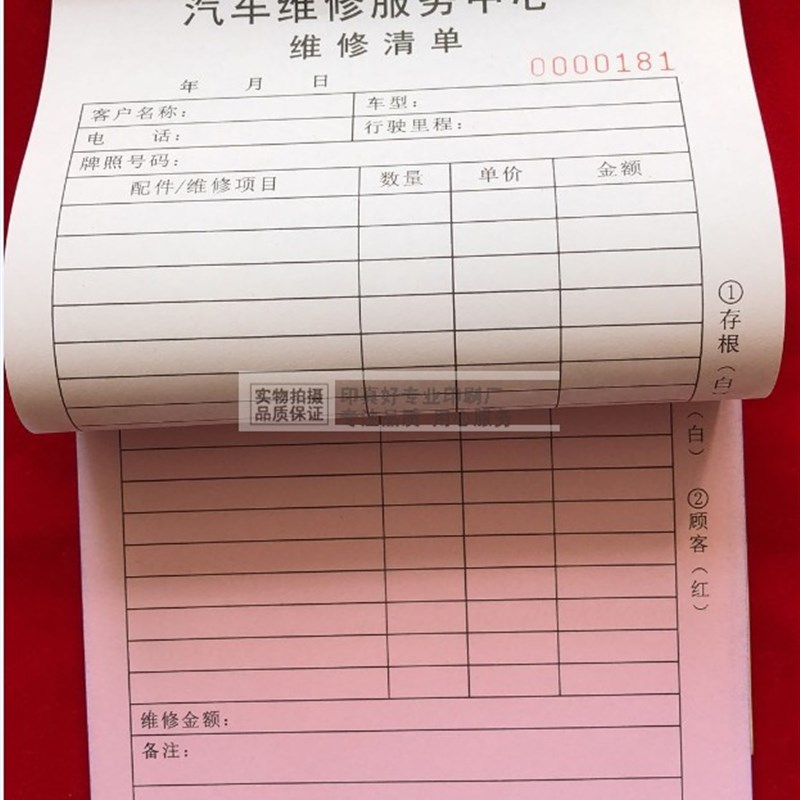 汽车维修服务中心
维修清单
0000181
年 月 日
客户名称： 车型：
电 话： 行驶里程：
牌照号码：
配件/维修项目 数量 单价 金额
①存根（白）
（白）
②顾客（红）
实物拍摄 印真好专业印刷厂
品质保证 专注品质 用心服务
维修金额：
备注：